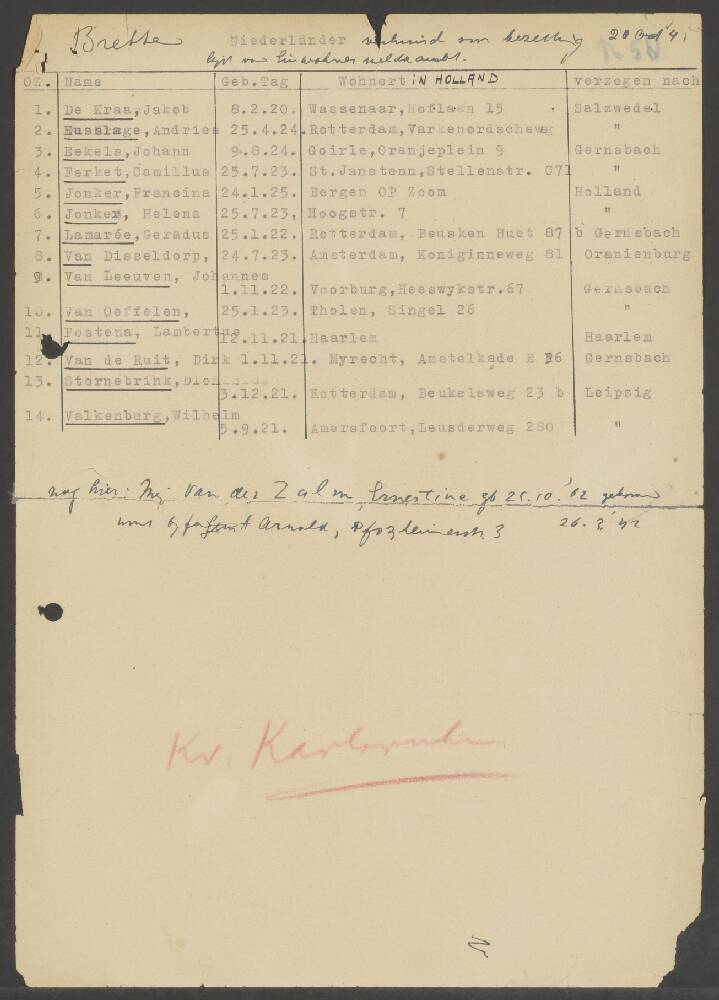 Bretten Niederländer
OZ. Name Geb.Tag Wohnort IN HOLLAND verzogen nach
1. De Kraa,Jakob 8.2.20. Wassenaar,Hoflaan 15 Salzwedel
2. Eusslage,Andries 25.4.24. Rotterdam,Varkenordscheweg "
3. Eekels,Johann 9.8.24. Goirle,Oranjeplein 9 Gernsbach
4. Ferket,Camillus 25.7.23. St.Janstenn,Stellenstr. C71 "
5. Jonker,Francina 24.1.25. Bergen OP Zoom Holland
6. Jonker, Helena 25.7.23, Hoogstr. 7 "
7. Lamarée,Geradus 25.1.22. Rotterdam, Beusken Huet 87 b Gernsbach
8. Van Disseldorp, 24.7.23. Amsterdam, Koniginneweg 81 Oranienburg
9. Van Leeuven, Johannes
1.11.22. Voorburg,Heeswykstr.67 Gernsbach
10. Van Oeffelen, 25.1.23. Tholen, Singel 26 "
11. Postena, Lambertus
12.11.21. Haarlem Haarlem
12. Van de Ruit, Dirk 1.11.21. Myrecht, Amstelkade E 26 Gernsbach
13. Stornebrink,
3.12.21. Rotterdam, Beukelsweg 23 b Leipzig
14. Valkenburg,Wilhelm
5.9.21. Amersfoort,Leusderweg 280 "
nog hier: Van der Zalm, Ernestine
Arnold, 3 26.2.42
Kr. Karlsruhe